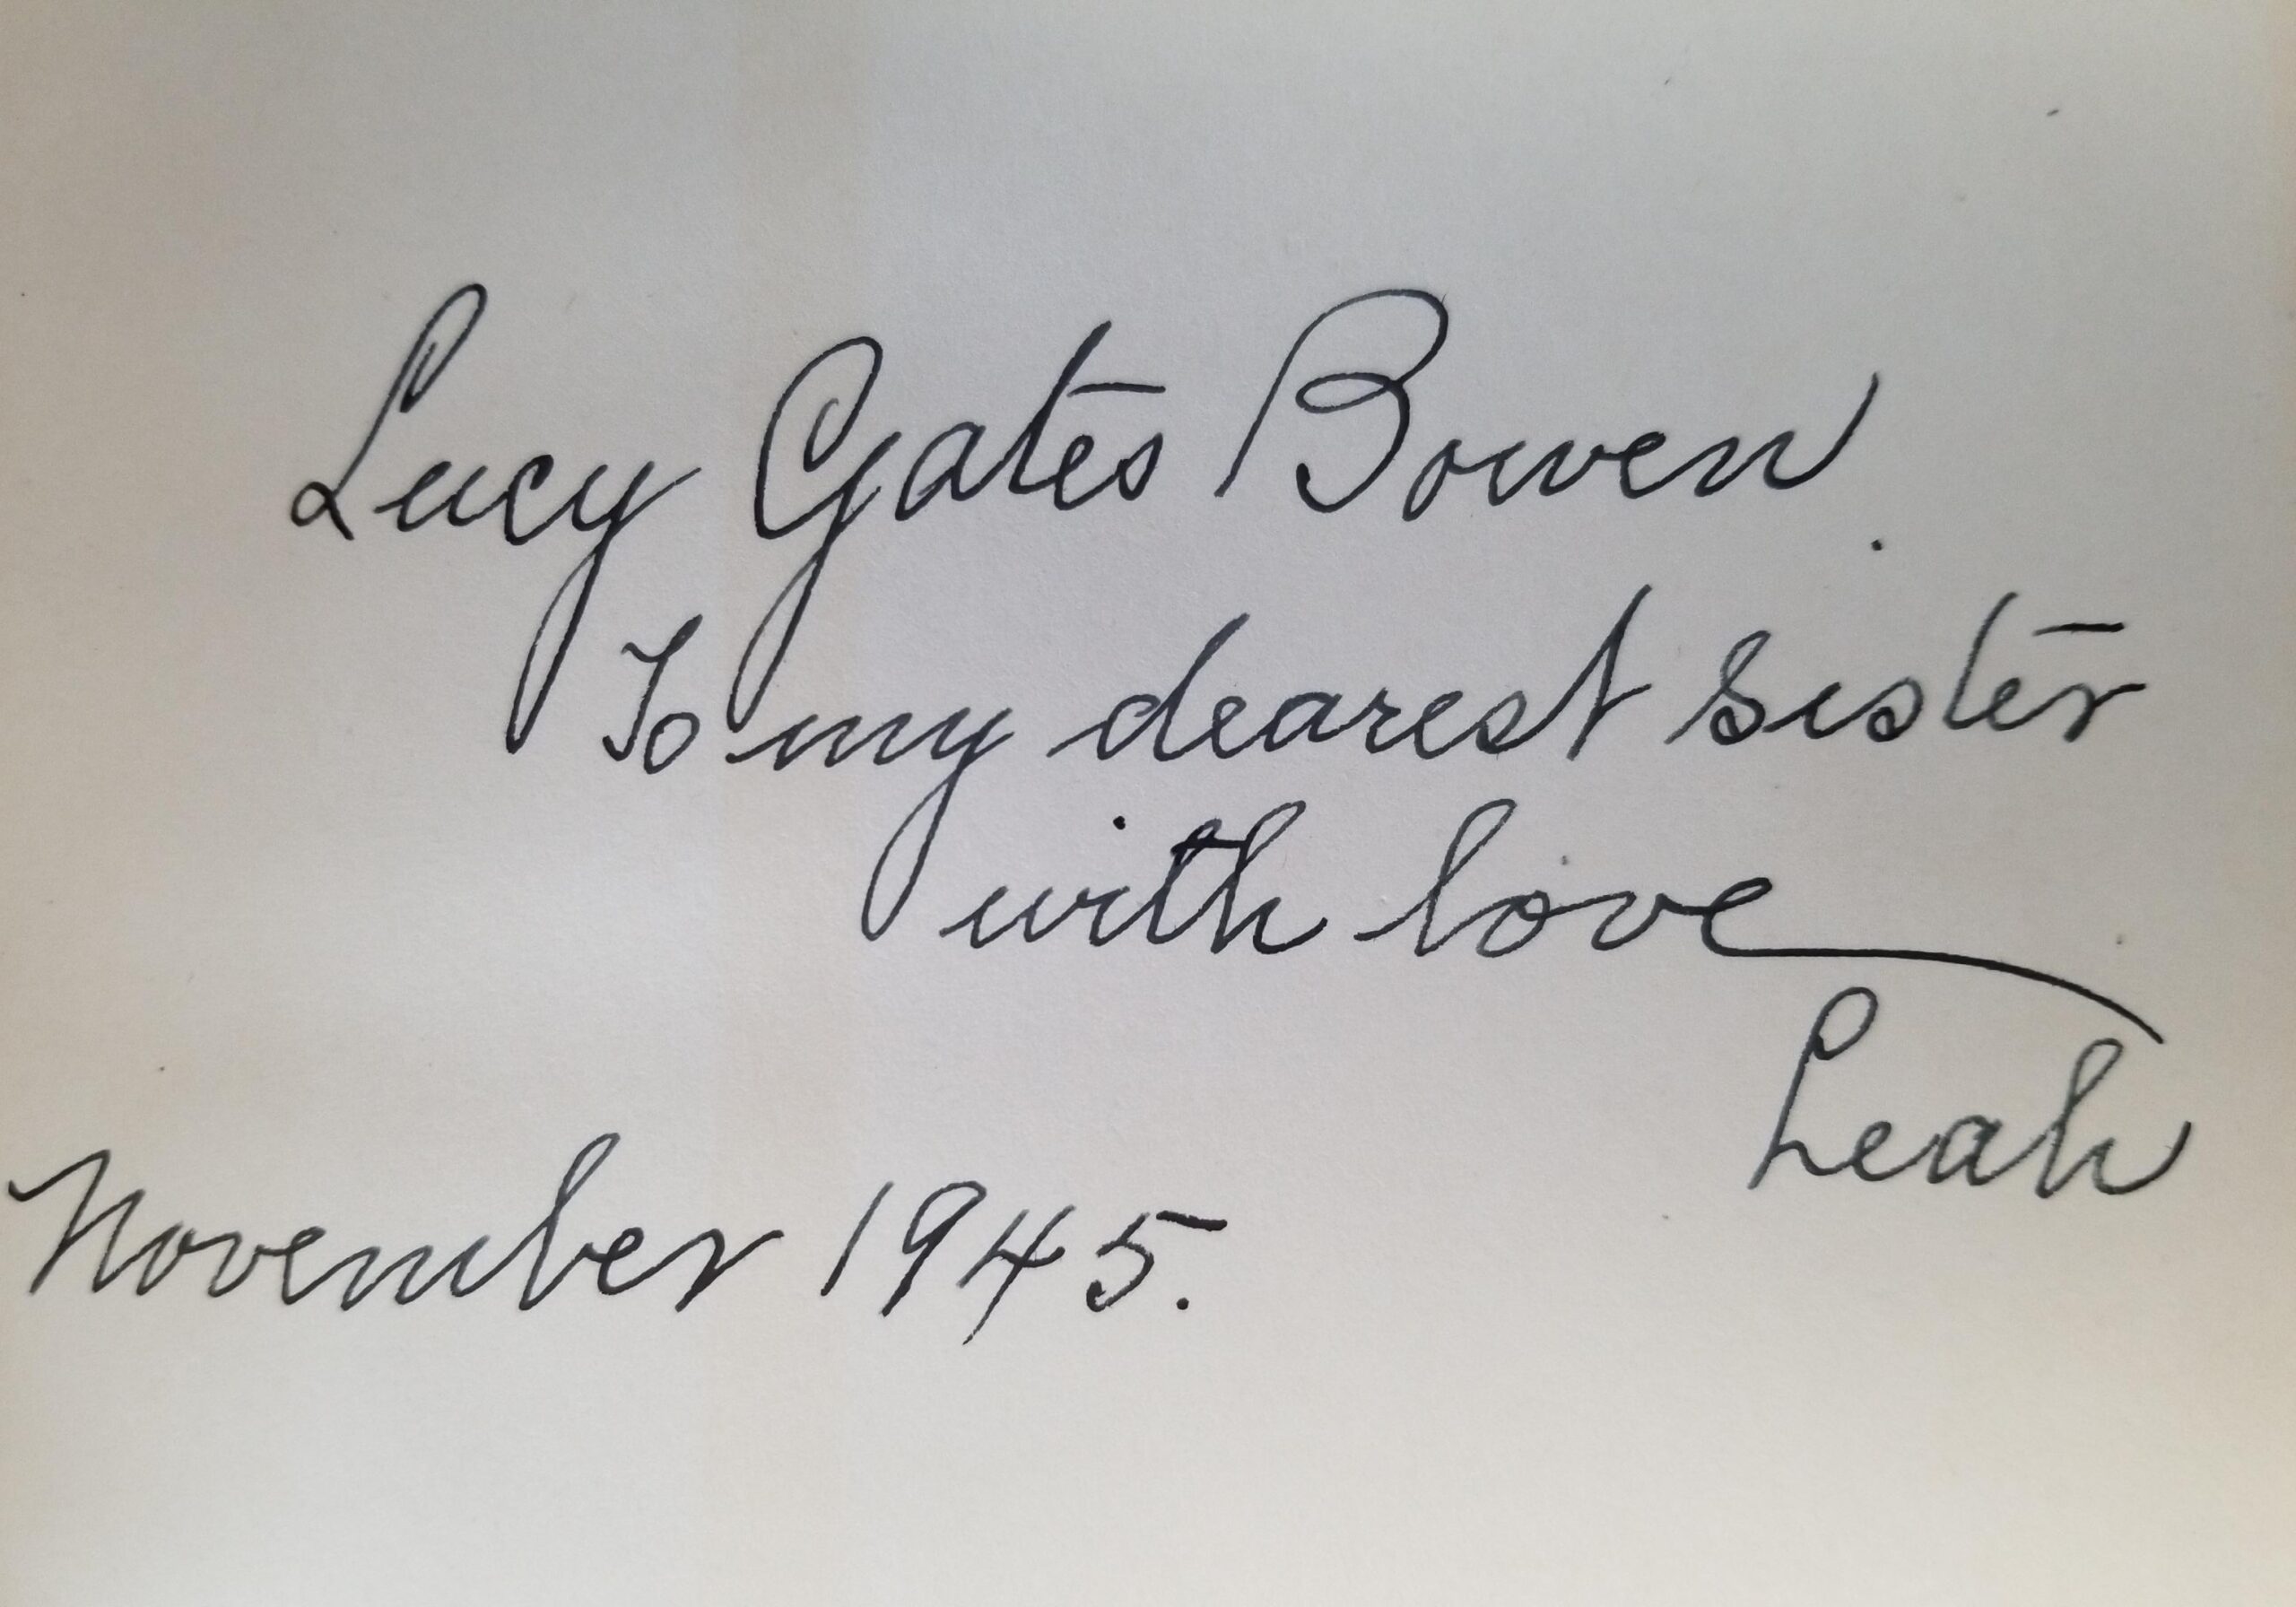 Lucy Gates Bowen.
To my dearest sister
with love
Leah
November 1945.